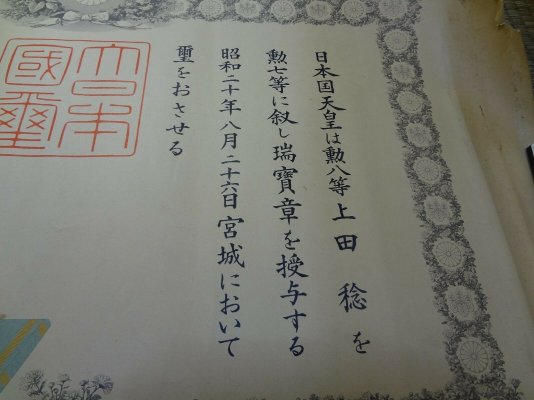 日本国天皇は勲八等上田稔を
勲七等に叙し瑞寶章を授与する
昭和二十年八月二十六日宮城において
璽をおさせる
大日本
國璽